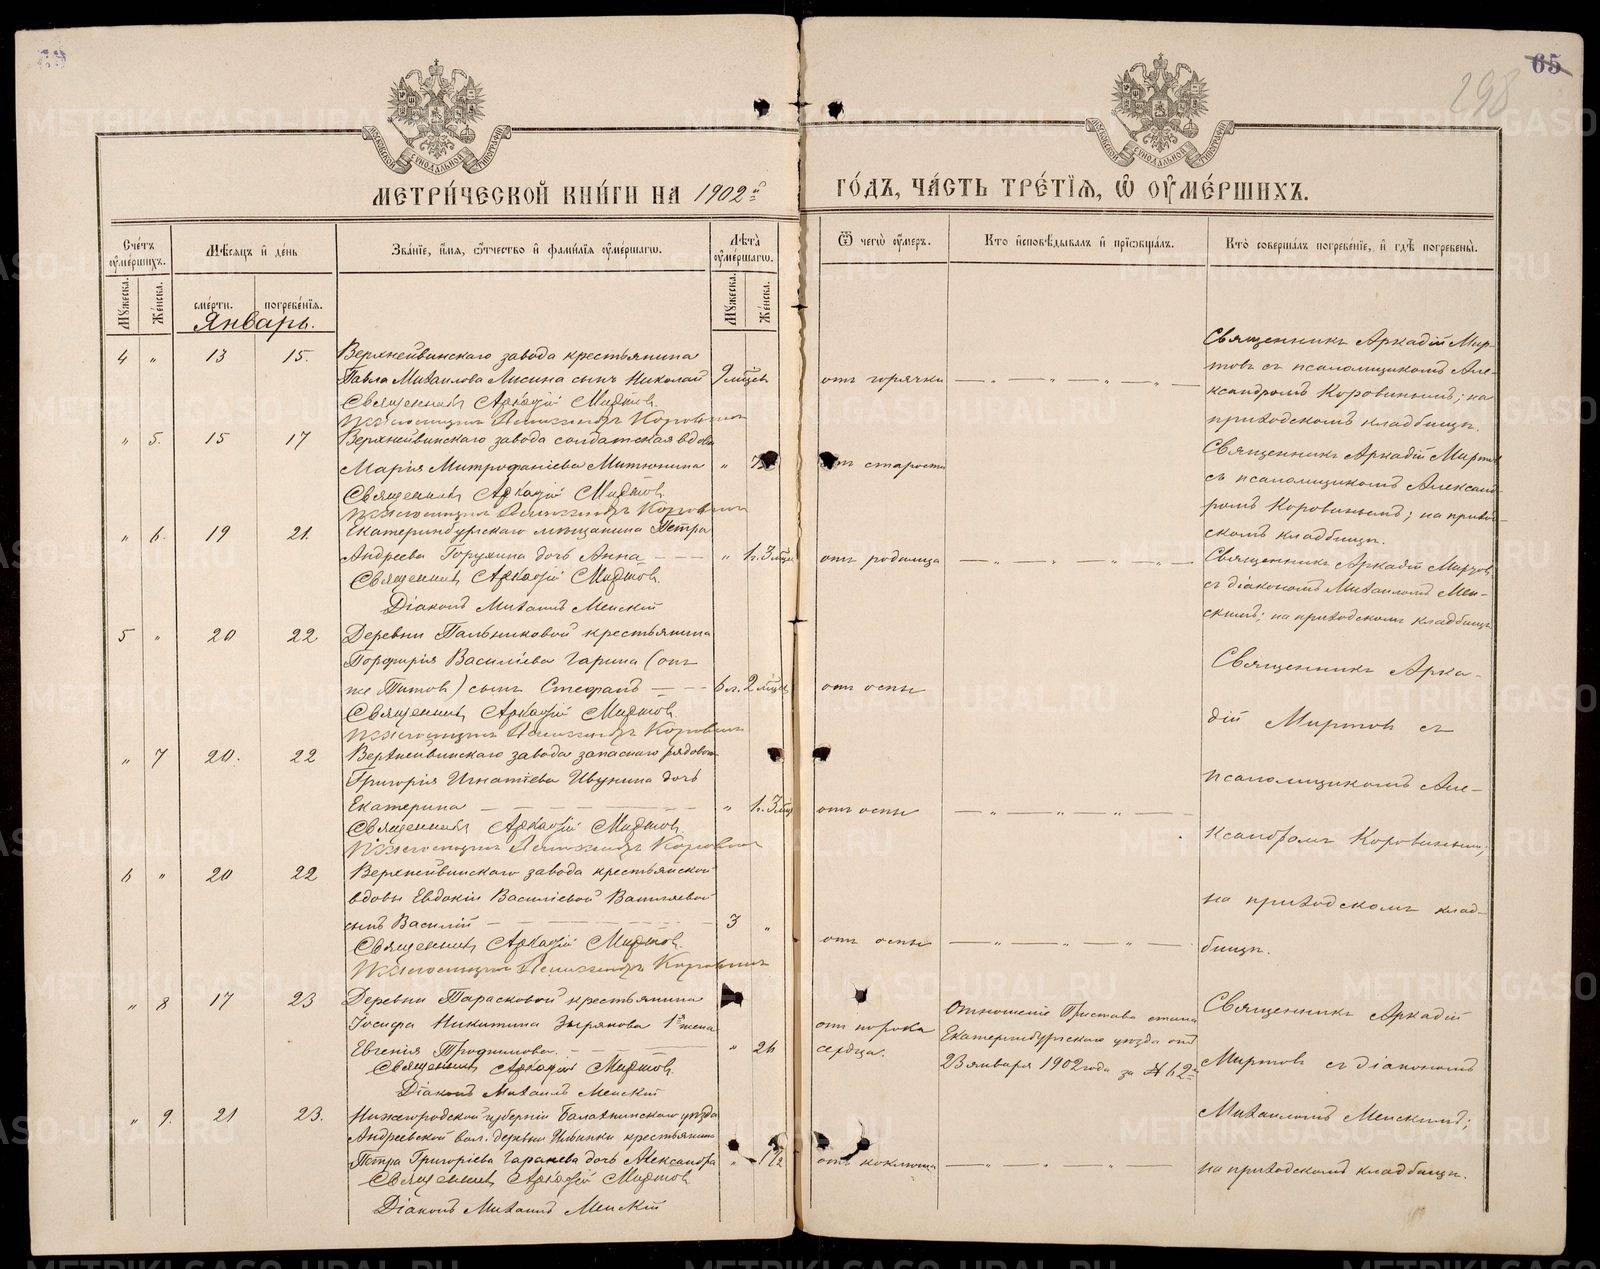 65
298
МЕТРИ́ЧЕСКОЙ КНИ́ГИ НА 1902й
ГО́ДЪ, ЧА́СТЬ ТРЕ́ТЇѦ, Ѽ ОУ҆МЕ́РШИХЪ.
Счетъ оумершихъ.
Мужеска.
Женска.
Мѣсяцъ и день
смерти.
погребенїя.
Званїе, имя, отчество и фамилїя оумершагω.
Лѣта оумершагω.
Мужеска.
Женска.
Ѿ чегω оумеръ.
Кто исповѣдывалъ и прїωбщалъ.
Кто совершалъ погребенїе, и гдѣ погребены.
Январь.
4 " 13 15.
Верхнейвинскаго завода крестьянина
Павла Михаилова Лисина сынъ Николай
9 мцев
Священникъ Аркадій Миртов
Псаломщикъ Александръ Коровинъ
отъ горячки
Священникъ Аркадій Мир-
товъ съ псаломщикомъ Але-
ксандромъ Коровинымъ; на
приходскомъ кладбищѣ.
" 5. 15 17
Верхнейвинскаго завода солдатская вдова
Марія Митрофаніева Митюнина "
Священникъ Аркадій Миртов
Псаломщикъ Александръ Коровинъ
отъ старости
Священникъ Аркадій Миртов
съ псаломщикомъ Александ-
ромъ Коровинымъ; на приход-
скомъ кладбищѣ.
" 6. 19 21.
Екатеринбургскаго мѣщанина Петра
Андреева Горухина дочь Анна " 1 г. 3 мцев
Священникъ Аркадій Миртов
Діаконъ Михаилъ Менскій
отъ родимца
Священникъ Аркадій Миртов
съ діакономъ Михаиломъ Мен-
скимъ; на приходскомъ кладбищѣ
5 " 20 22
Деревни Пальниковой крестьянина
Порфирія Василіева Гарина (онъ
же Титов) сынъ Стефанъ 6 л. 2 мцев
Священникъ Аркадій Миртов
Псаломщикъ Александръ Коровинъ
отъ оспы
Священникъ Арка-
дій Миртов съ
псаломщикомъ Але-
ксандромъ Коровинымъ;
на приходскомъ клад-
бищѣ.
" 7 20. 22
Верхнейвинскаго завода запаснаго рядового
Григорія Игнатіева Ивукина дочь
Екатерина " 1 г. 3 мцев
Священникъ Аркадій Миртов
Псаломщикъ Александръ Коровинъ
отъ оспы
6 " 20 22
Верхнейвинскаго завода крестьянской
вдовы Евдокіи Василіевой Вотиняевой
сынъ Василій 3 "
Священникъ Аркадій Миртов
Псаломщикъ Александръ Коровинъ
отъ оспы
" 8 17 23
Деревни Тарасковой крестьянина
Іосифа Никитина Зырянова 1я жена
Евгенія Трофимова. " 26
Священникъ Аркадій Миртов
Діаконъ Михаилъ Менскій
отъ порока
сердца.
Отношеніе Пристава стана
Екатеринбургскаго уѣзда отъ
23 января 1902 года за № 62
Священникъ Аркадій
Миртовъ съ діакономъ
Михаиломъ Менскимъ;
на приходскомъ кладбищѣ.
" 9. 21 23.
Нижегородской губерніи Балахнинскаго уѣзда
Андреевской вол. деревни Ильинки крестьянина
Петра Григоріева Гаранева дочь Александра " 1 1/2
Священникъ Аркадій Миртов
Діаконъ Михаилъ Менскій
отъ коклюша
METRIKI.GASO-URAL.RU